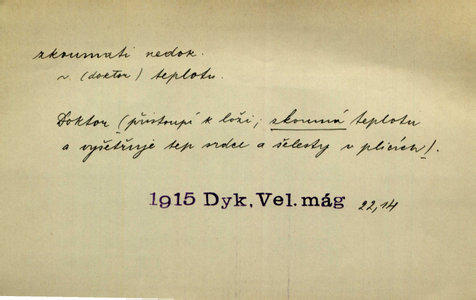 zkoumati nedok.
~ (doktor) teplotu.
Doktor (přistoupí k loži; zkoumá teplotu
a vyšetřuje tep srdce a šelesty v plicích).
1915 Dyk, Vel. mág 22,14